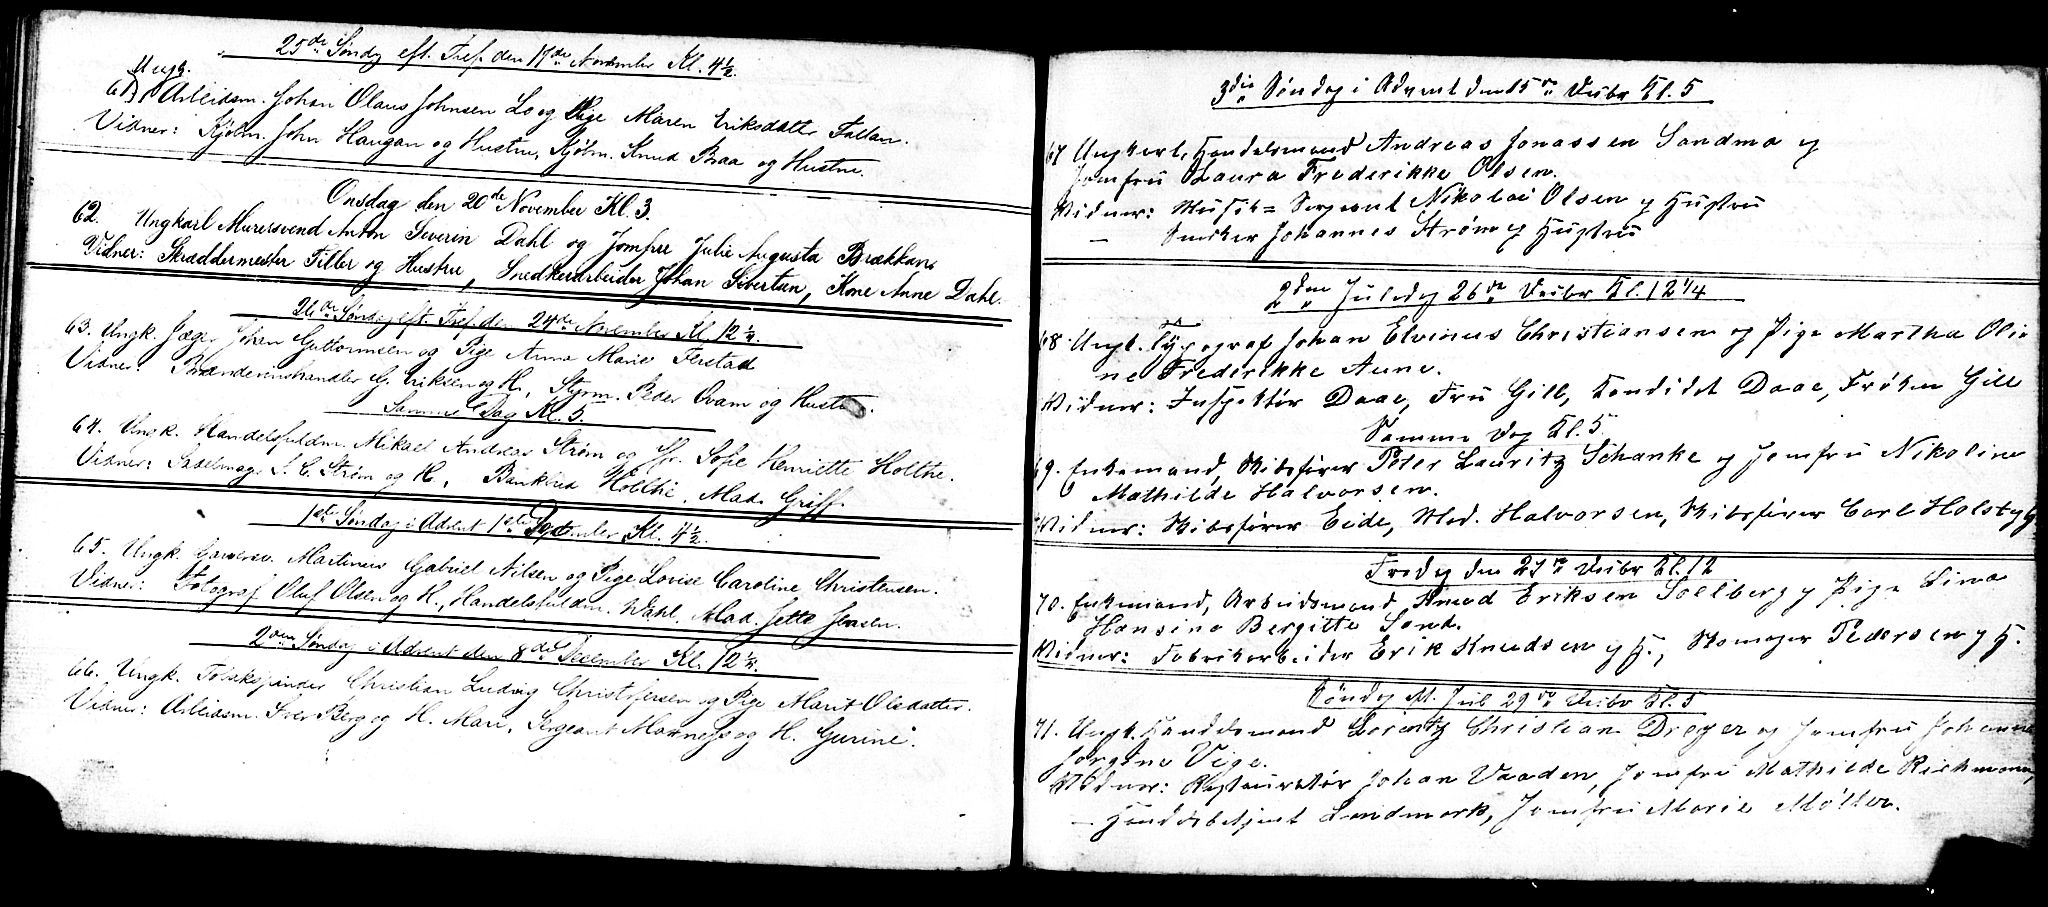 25de Søndg eft. Tref. den 17de November Kl. 4½.
Ungk.
61) Arbeidsm. Johan Olaus Johnsen Lo og Pige Maren Eriksdatter Fallan.
Vidner: Kjøbm. John Haugan og Hustru, Kjøbm. Knud Braa og Hustru.
Onsdag den 20de November Kl. 3.
62. Ungkarl Muersvend Anton Severin Dahl og Jomfru Julie Augusta Brækkan.
Vidner: Skræddermester Filler og Hustru, Snedkerarbeider Johan Sivertsen, Kone Anne Dahl.
26de Søndag eft. Tref. den 24de November Kl. 12¼.
63. Ungk. Jæger Johan Guttormsen og Pige Anna Marie Ferstad
Vidner: Brændevinshandler G. Eriksen og H., Styrm. Peder Qvam og Hustru.
Samme Dag Kl. 5.
64. Ungk. Handelsfuldm. Mikael Andreas Strøm og Jfr. Sofie Henriette Holthe.
Vidner: Sadelmager S. C. Strøm og H., Bankbud Holthe, Mad. Griff.
1ste Søndag i Advent 1ste December Kl. 4½.
65. Ungk. Garversv. Martinus Gabriel Nilsen og Pige Lovise Caroline Christensen.
Vidner: Fotograf Oluf Olsen og H., Handelsfuldm. Wahl, Mad. Jette Jensen.
2den Søndag i Advent den 8de December Kl. 12¼.
66. Ungk. Tobakspinder Christian Ludvig Christofersen og Pige Marit Olsdatter.
Vidner: Arbeidsm. Iver Berg og H. Mari, Sergeant Mannes og H. Gurine.
3die Søndag i Advent den 15de Decbr Kl. 5
67 Ungkarl, Handelsmand Andreas Jonassen Sandmo og
Jomfru Laura Frederikke Olsen.
Vidner: Musik= Sergeant Nikolai Olsen og Hustru
— Snedker Johannes Strøm og Hustru
2den Juledag 26de Decbr Kl. 12¼
68. Ungk. Typograf Johan Elvinus Christiansen og Pige Martha Oli-
ne Frederikke Aune.
Vidner: Inspektør Daae, Fru Gill, Kandidat Daae, Frøken Gill
Samme Dag Kl. 5.
69. Enkemand, Skibsfører Peter Lauritz Schanke og Jomfru Nikoline
Mathilde Halvorsen.
Vidner: Skibsfører Eide, Mad. Halvorsen, Skibsfører Carl Holst og H.
Fredag den 27de Decbr Kl. 12
70. Enkemand, Arbeidsmand Knud Eriksen Solberg og Pige Sina
Hansine Bergitte Sand.
Vidner: Fabrikarbeider Erik Knudsen og H., Skomager Pedersen og H.
Søndag M. Jul 29de Decbr Kl. 5
71. Ungk. Handelsmand Lorentz Christian Dreyer og Jomfru Johanna
Jørgine Vige.
Vidner: Restauratør Johan Vaaden, Jomfru Mathilde Richmann,
— Handelsbetjent Landmark, Jomfru Marie Møller.